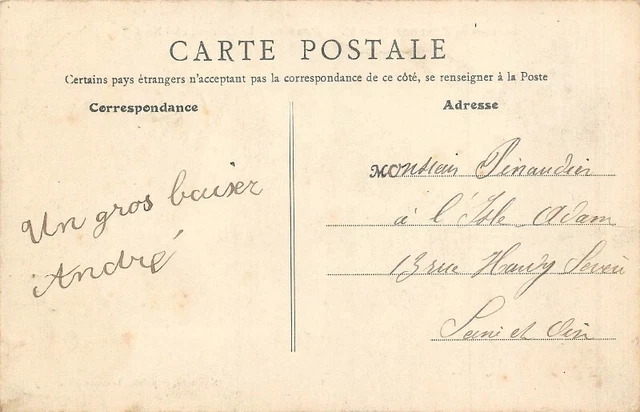 CARTE POSTALE
Certains pays étrangers n'acceptant pas la correspondance de ce côté, se renseigner à la Poste
Correspondance
Un gros baiser
André
Adresse
Monsieur Pinaudier
à l'Isle Adam
13 rue
Seine et Oise